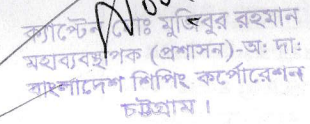 ক্যাপ্টেন মোঃ মুজিবুর রহমান
মহাব্যবস্থাপক (প্রশাসন)-অঃ দাঃ
বাংলাদেশ শিপিং কর্পোরেশন
চট্টগ্রাম।